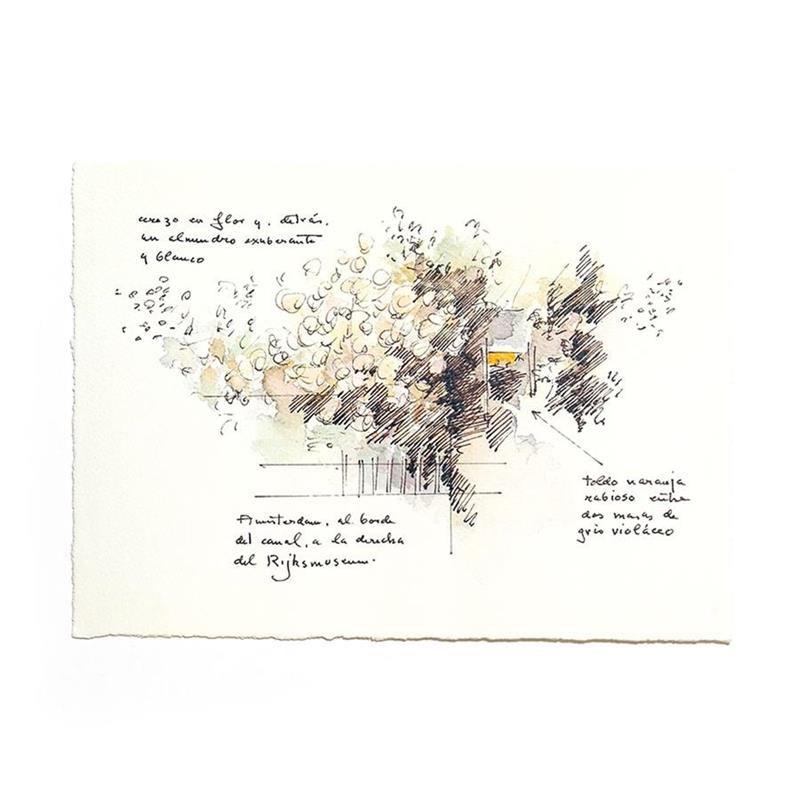 cerezo en flor y, detrás,
un almendro exuberante
y blanco
toldo naranja
rabioso entre
dos masas de
gris violáceo
Amsterdam, al borde
del canal, a la derecha
del Rijksmuseum.